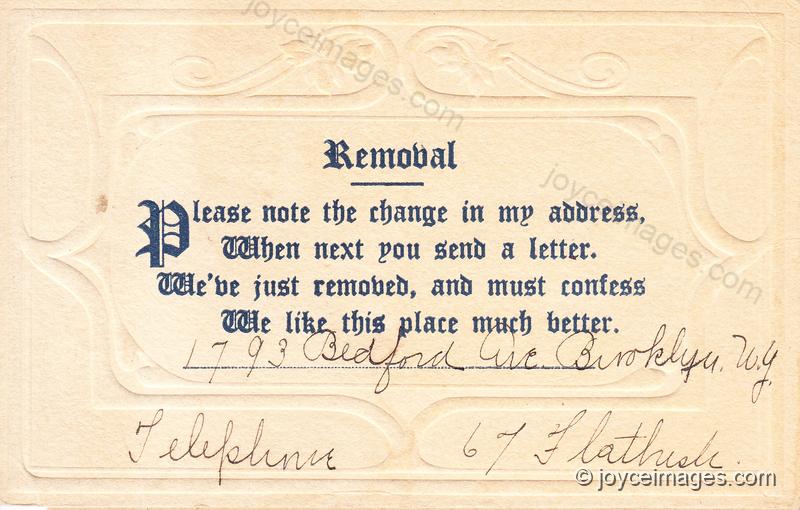 Removal
Please note the change in my address,
When next you send a letter.
We've just removed, and must confess
We like this place much better.
1793 Bedford Ave. Brooklyn. N.Y.
Telephone 67 Flatbush.
joyceimages.com
joyceimages.com
© joyceimages.com